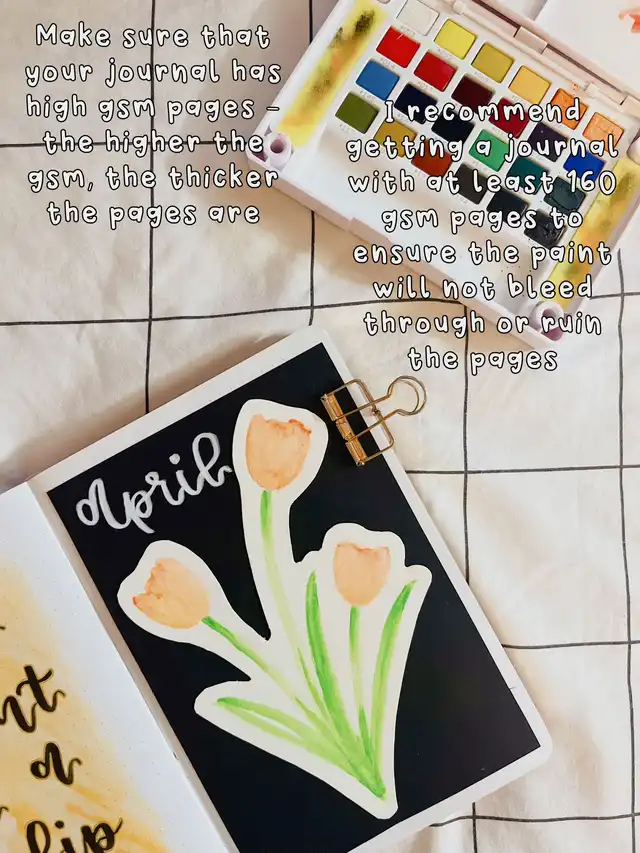 Make sure that
your journal has
high gsm pages -
the higher the
gsm, the thicker
the pages are
I recommend
getting a journal
with at least 160
gsm pages to
ensure the paint
will not bleed
through or ruin
the pages
April
a